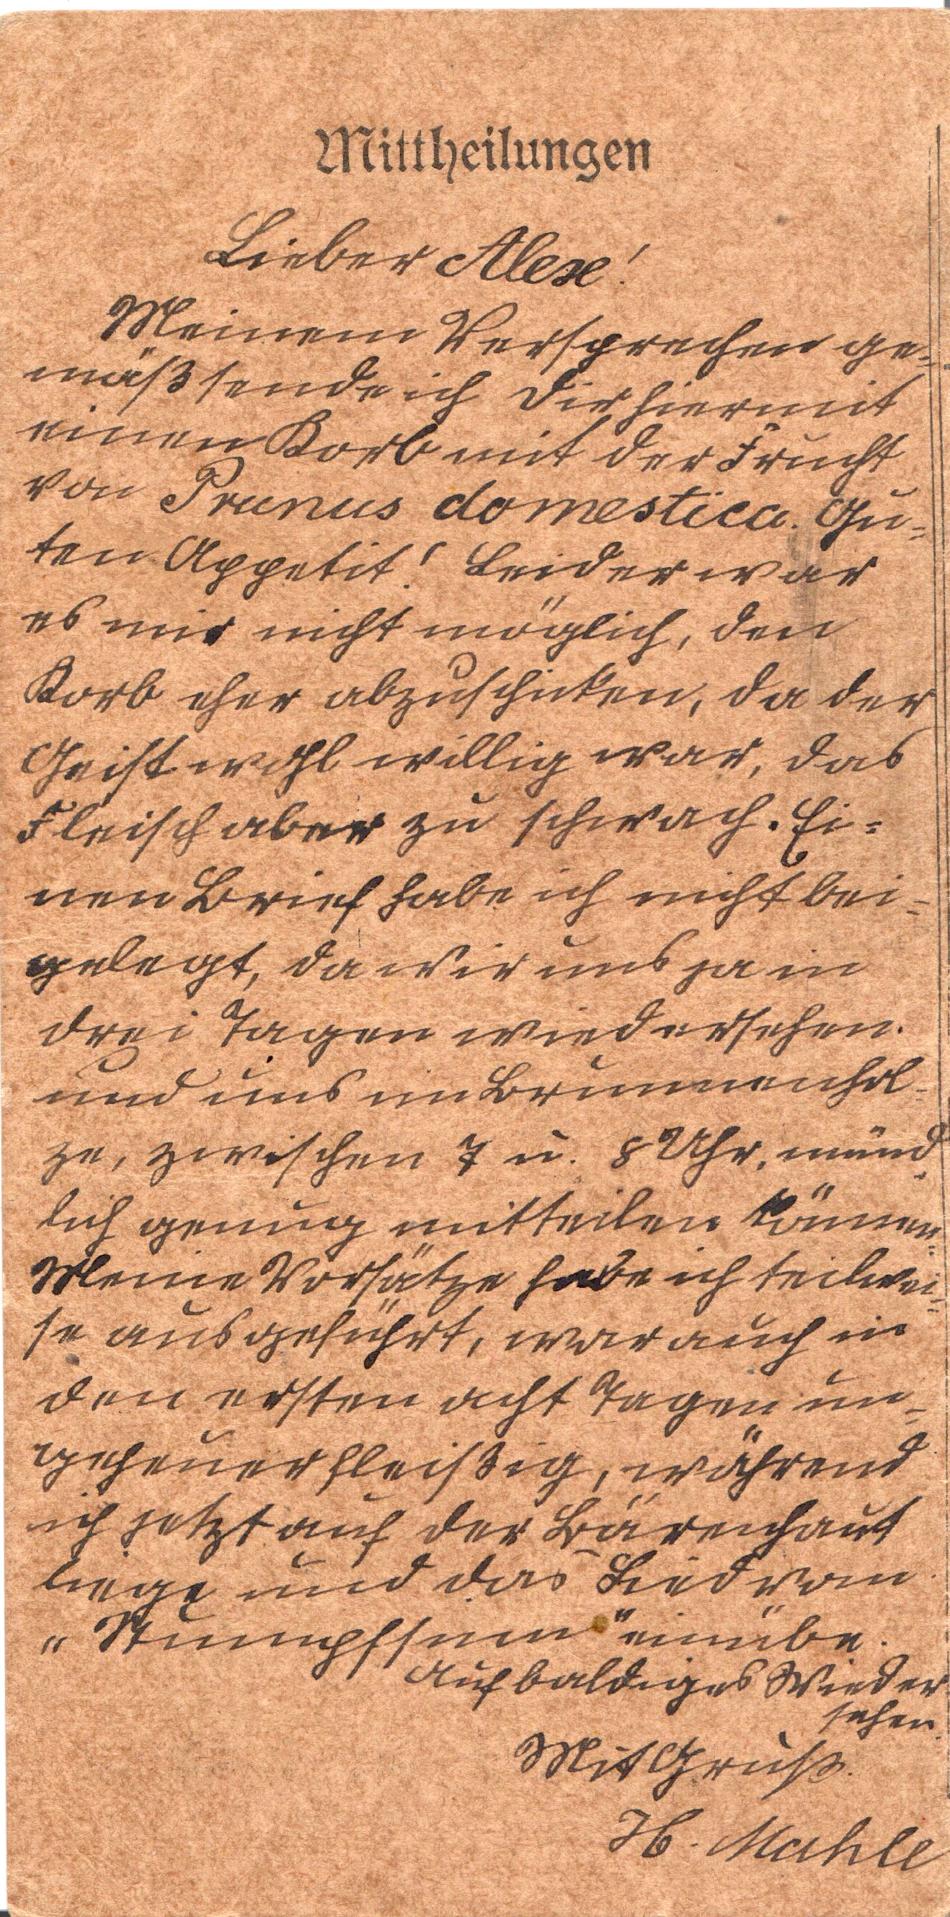 Mittheilungen
Lieber Alex!
Meinem Versprechen ge-
mäß sende ich Dir hiermit
einen Korb mit der Frucht
von Prunus domestica. Gu-
ten Appetit! Leider war
es mir nicht möglich, den
Korb eher abzuschicken, da der
Geist wohl willig war, das
Fleisch aber zu schwach. Ei-
nen Brief habe ich nicht bei-
gelegt, da wir uns ja in
drei Tagen wiedersehen.
und uns im Brunnenhol-
ze, zwischen 7 u. 8 Uhr, münd-
lich genug mitteilen können.
Meine Vorsätze habe ich teilwei-
se ausgeführt, war auch in
den ersten acht Tagen un-
geheuer fleißig, während
ich jetzt auf der Bärenhaut
liege und das Lied vom
„Stumpfsinn" einübe.
Auf baldiges Wieder
sehen.
Mit Gruß.
H. Mahle